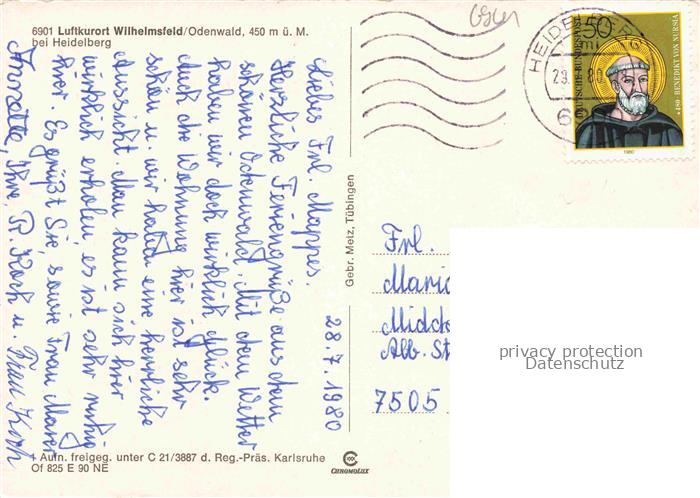 6901 Luftkurort Wilhelmsfeld/Odenwald, 450 m ü. M.
bei Heidelberg
28.7.1980
Liebes Frl. Mappes.
Herzliche Feriengrüße aus dem
schönen Odenwald. Mit dem Wetter
haben wir doch wirklich Glück.
Auch die Wohnung hier ist sehr
schön u. wir haben eine herrliche
Aussicht. Man kann sich hier
wirklich erholen, es ist sehr ruhig
hier. Es grüßt Sie, sowie Frau Mayer
Annette, Ihre R. Koch u. Frau Koch
Gebr. Metz, Tübingen
1 Aufn. freigeg. unter C 21/3887 d. Reg.-Präs. Karlsruhe
Of 825 E 90 NE
CHROMOLUX
HEIDELBERG
50
DEUTSCHE BUNDESPOST
*480 BENEDIKT VON NURSIA
1980
Frl.
Maria
Midde
Alb. St
7505
privacy protection
Datenschutz